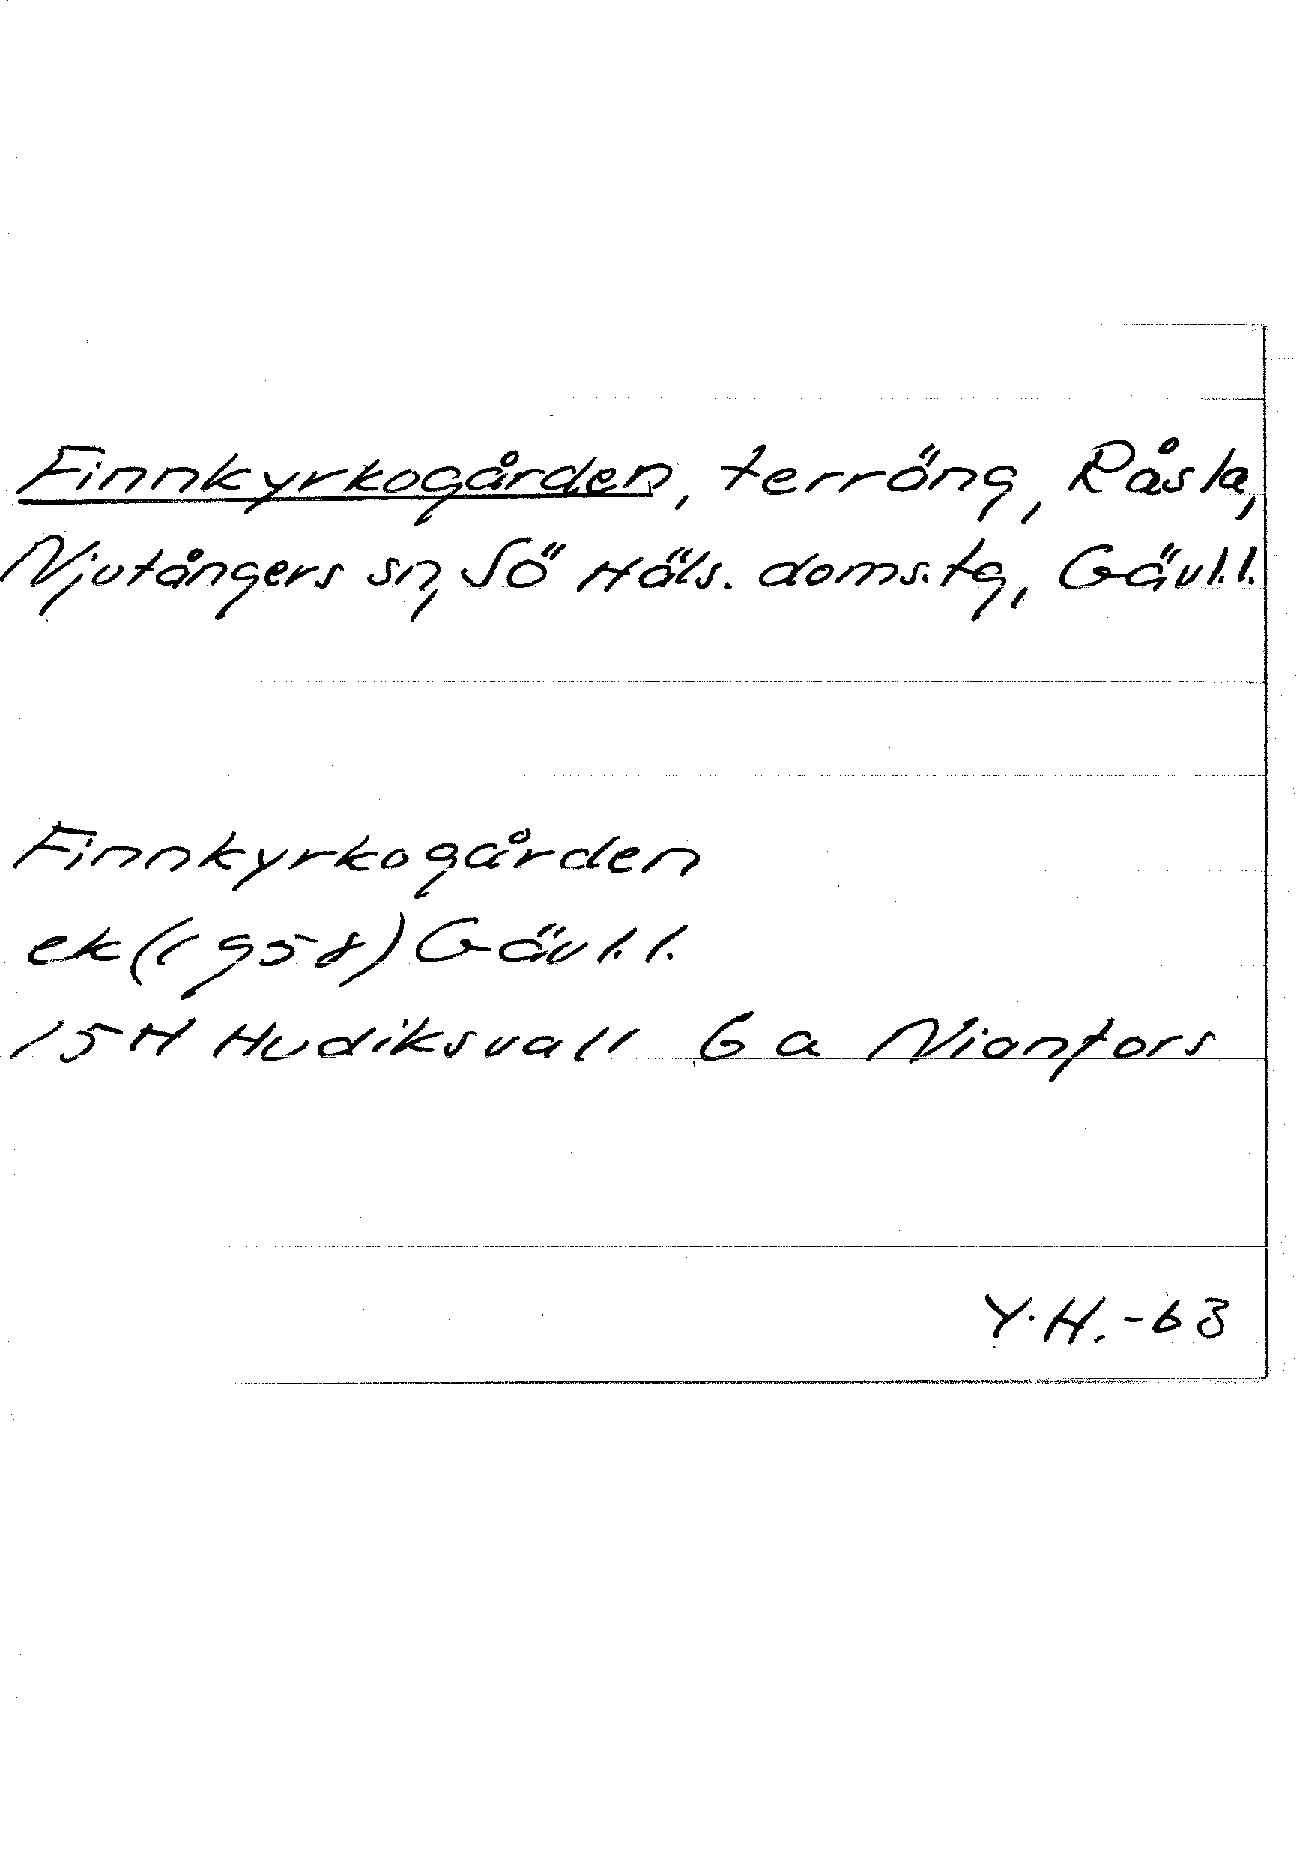 Finnkyrkogården, terräng, Råsta,
Njutångers sn, Sö Häls. doms.tg, Gävl.l.
Finnkyrkogården
ek(1958) Gävl.l.
15H Hudiksvall 6a Nianfors
Y.H.-63